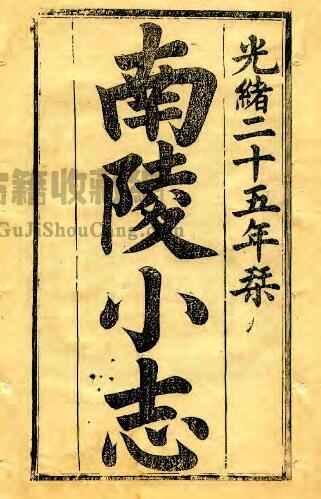 光緒二十五年栞
南陵小志
古籍收藏
GuJiShouCang.com